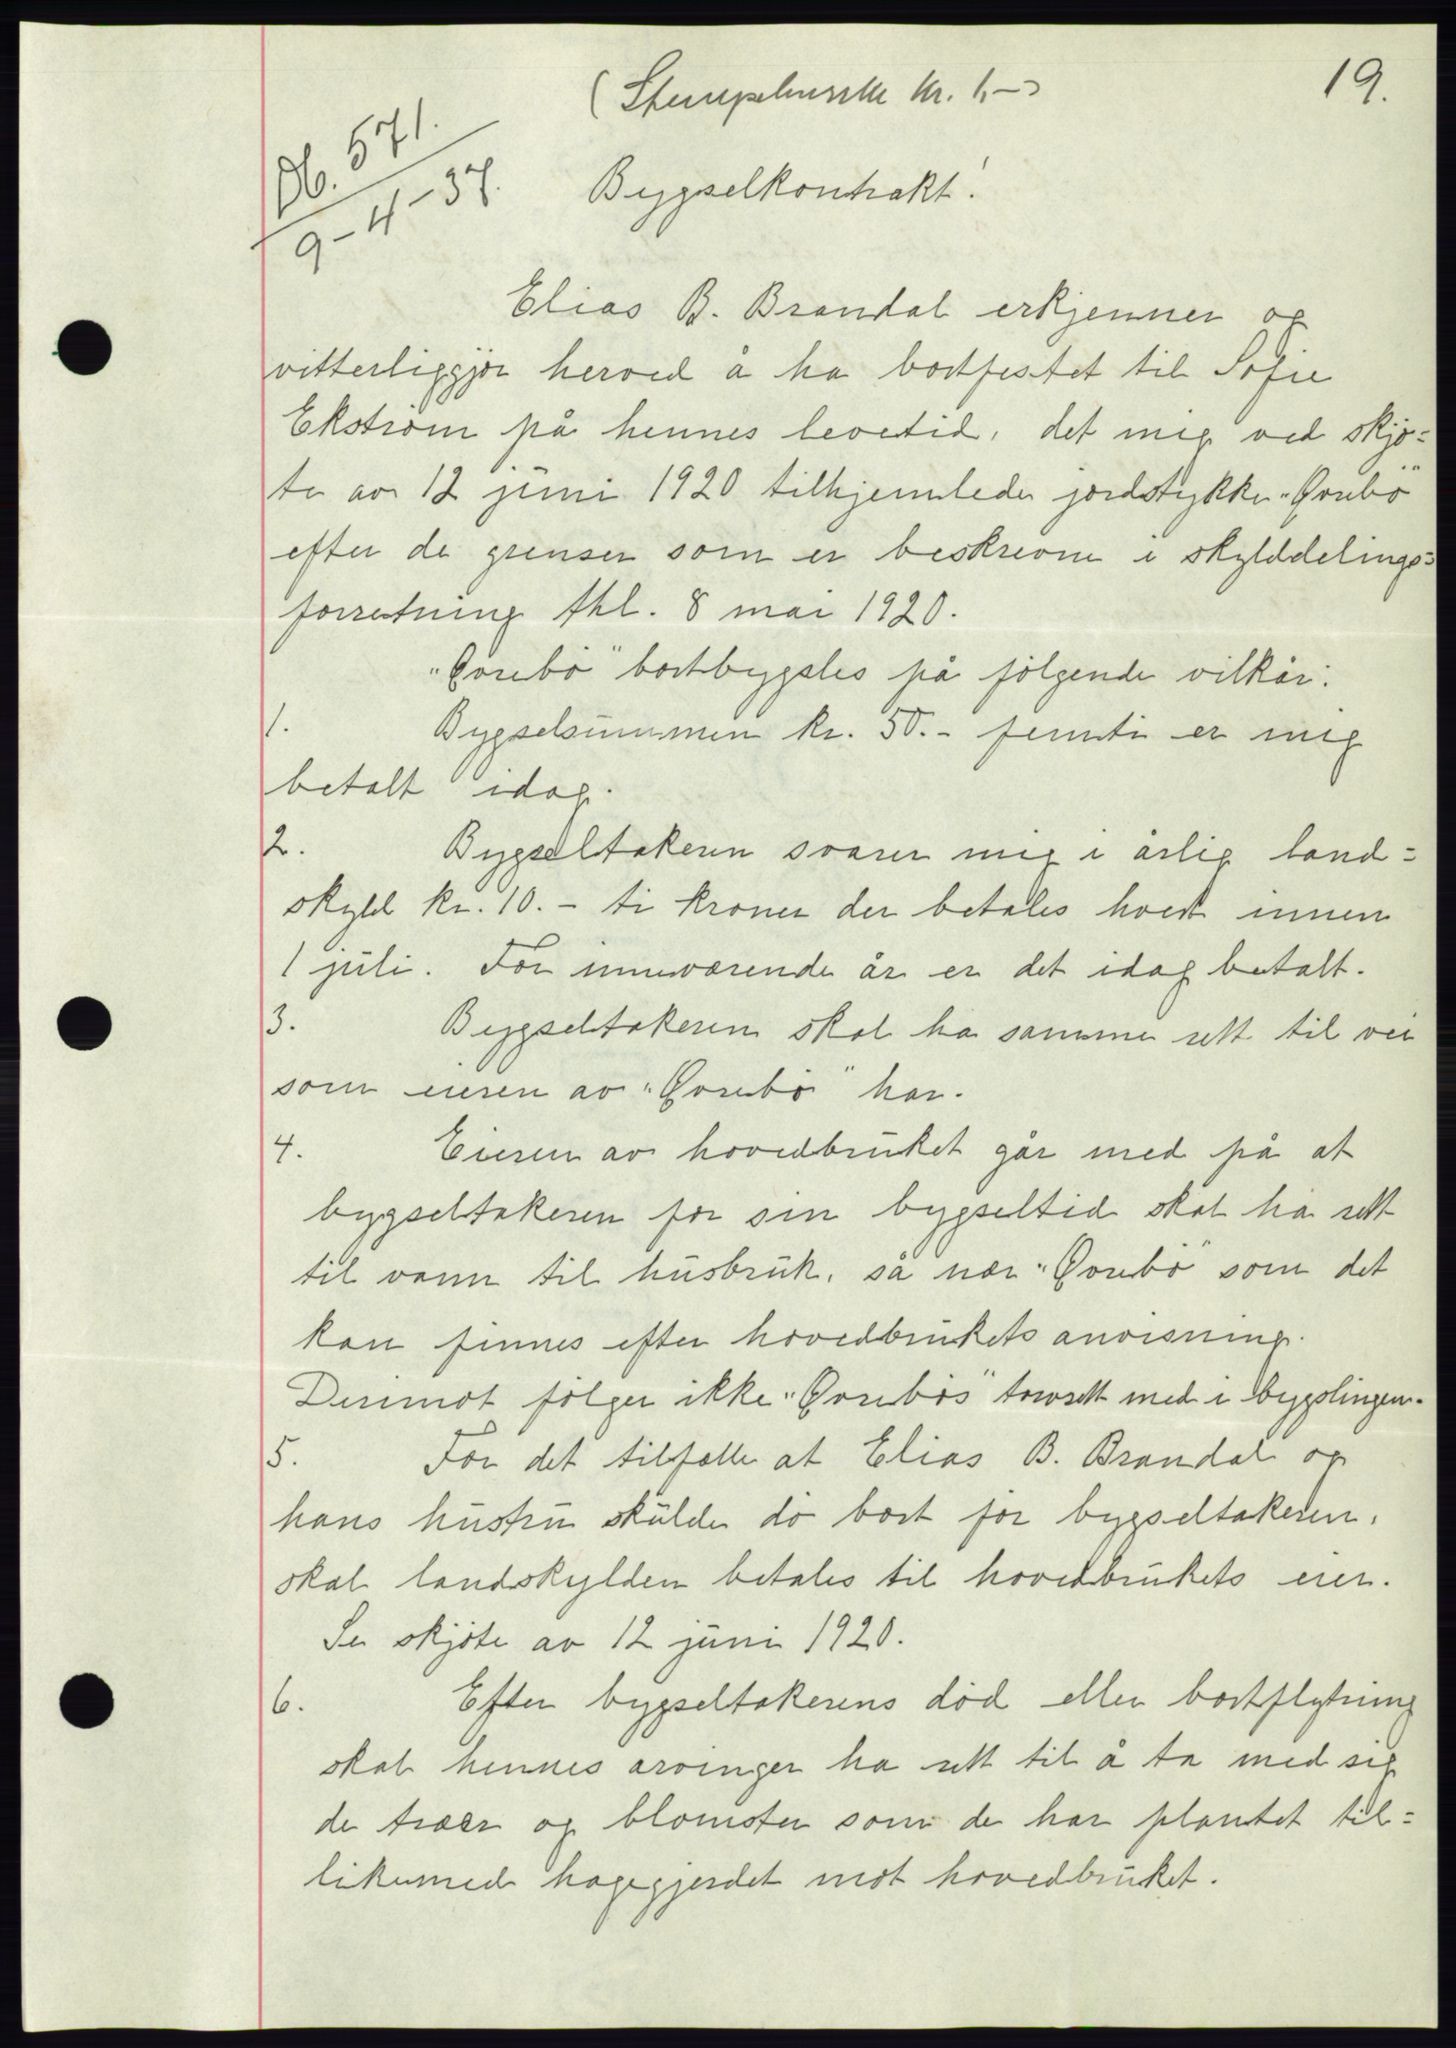 19.
(Stempelmerke kr. 1,-)
Db. 571.
9-4-37.
Bygselkontrakt!
Elias B. Brandal erkjenner og
vitterliggjør herved å ha bortfestet til Sofie
Ekstrøm på hennes levetid, det mig ved skjø=
te av 12 juni 1920 tilhjemlede jordstykke "Øvrebø"
efter de grenser som er beskrevne i skylddelings=
forretning thl. 8 mai 1920.
"Øvrebø" bortbygsles på følgende vilkår:
1. Bygselsummen kr. 50.- femti er mig
betalt idag.
2. Bygseltakeren svarer mig i årlig land=
skyld kr. 10.- ti kroner der betales hvert innen
1 juli. For inneværende år er det idag betalt.
3. Bygseltakeren skal ha samme rett til vei
som eieren av "Øvrebø" har.
4. Eieren av hovedbruket går med på at
bygseltakeren for sin bygseltid skal ha rett
til vann til husbruk, så nær "Øvrebø" som det
kan finnes efter hovedbrukets anvisning.
Derimot følger ikke "Øvrebøs" torvrett med i bygslingen.
5. For det tilfelle at Elias B. Brandal og
hans hustru skulde dø bort før bygseltakeren,
skal landskylden betales til hovedbrukets eier.
Se skjøte av 12 juni 1920.
6. Efter bygseltakerens død eller bortflytning
skal hennes arvinger ha rett til å ta med sig
de trær og blomster som de har plantet til=
likemed hagegjerdet mot hovedbruket.